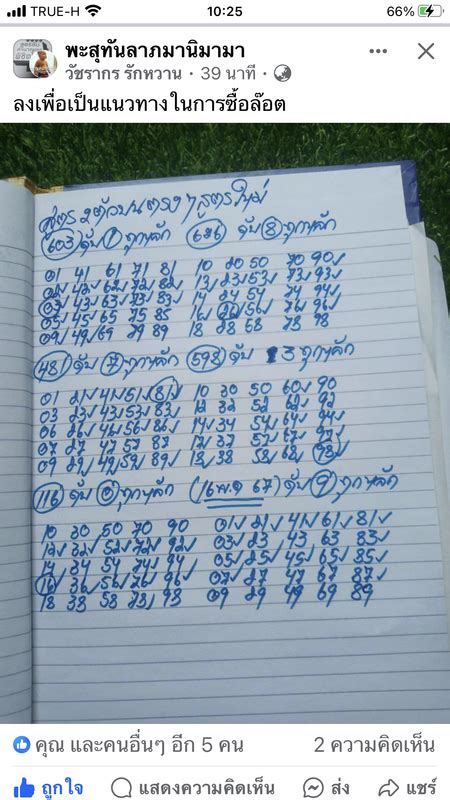 TRUE-H 10:25 66%
พะสุทันลาภมานิมามา
วัชรากร รักหวาน · 39 นาที ·
ลงเพื่อเป็นแนวทางในการซื้อล๊อต
สูตร 2ตัวบนตรงๆ สูตรใหม่
603 ดับ 1 ทุกหลัก 626 ดับ 8 ทุกหลัก
01 41 61 71 81 10 20 50 70 90
03 43 63 73 83 14 24 54 74 94
05 45 65 75 85
09 49 69 79 89 18 28 58 78 98
481 ดับ 7 ทุกหลัก 598 ดับ 3 ทุกหลัก
01 21 41 51 81 10 30 50 60 90
03 23 43 53 83 12 32 52 62 92
06 26 46 56 86 14 34 54 64 94
07 27 47 57 87 17 37 57 67 97
09 29 49 59 89 18 38 58 68 98
116 ดับ 0 ทุกหลัก (16 พ.ค 67) ดับ 9 ทุกหลัก
10 30 50 70 90 01 21 41 61 81
12 32 52 72 92 03 23 43 63 83
14 34 54 74 94 05 25 45 65 85
16 36 56 76 96 07 27 47 67 87
18 38 58 78 98 09 29 49 69 89
คุณ และคนอื่นๆ อีก 5 คน 2 ความคิดเห็น
ถูกใจ แสดงความคิดเห็น ส่ง แชร์